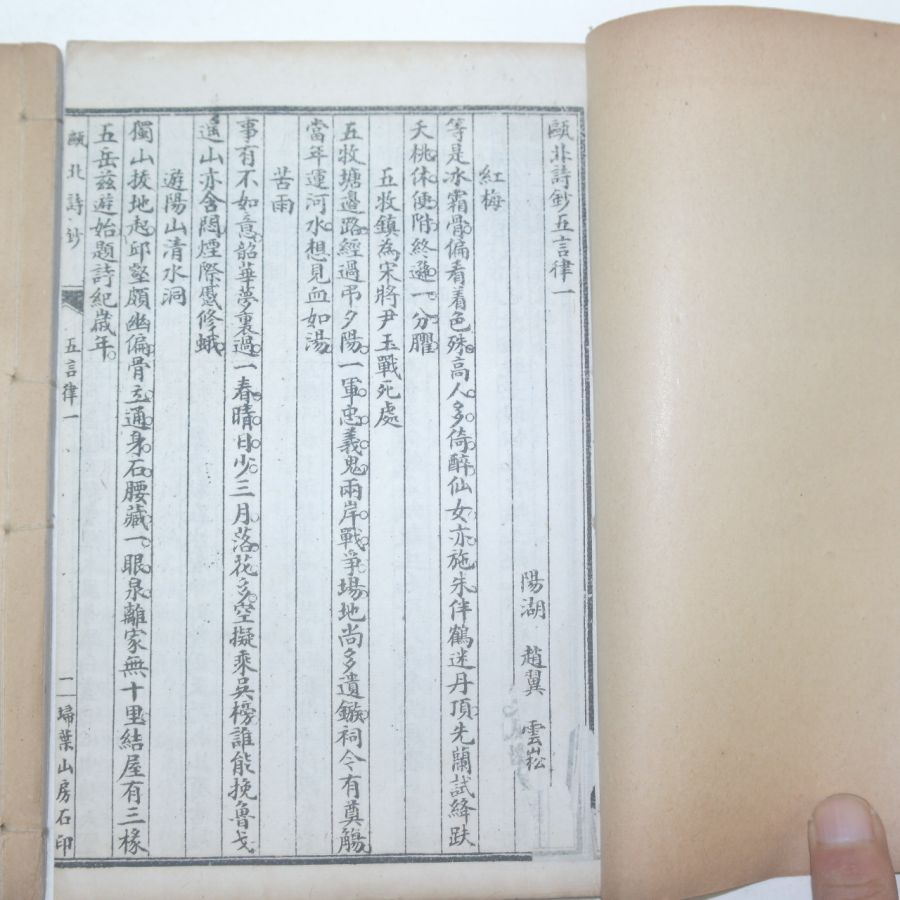 甌北詩鈔五言律一
陽湖 趙翼 雲崧
紅梅
等是冰霜骨偏看着色殊高人多倚醉仙女亦施朱伴鶴迷丹頂先蘭試絳趺
夭桃休便附終遜一分臞
五牧鎮為宋將尹玉戰死處
五牧塘邊路經過弔夕陽一軍忠義鬼兩岸戰爭場地尚多遺鏃祠今有奠觴
當年運河水想見血如湯
苦雨
事有不如意韶華夢裏過一春晴日少三月落花多空擬乘吳榜誰能挽魯戈
遥山亦含悶煙際蹙修蛾
遊陽山清水洞
獨山拔地起邱壑頗幽偏骨立通身石腰藏一眼泉離家無十里結屋有三椽
五岳茲遊始題詩紀歲年
甌北詩鈔 五言律一 二 埽葉山房石印